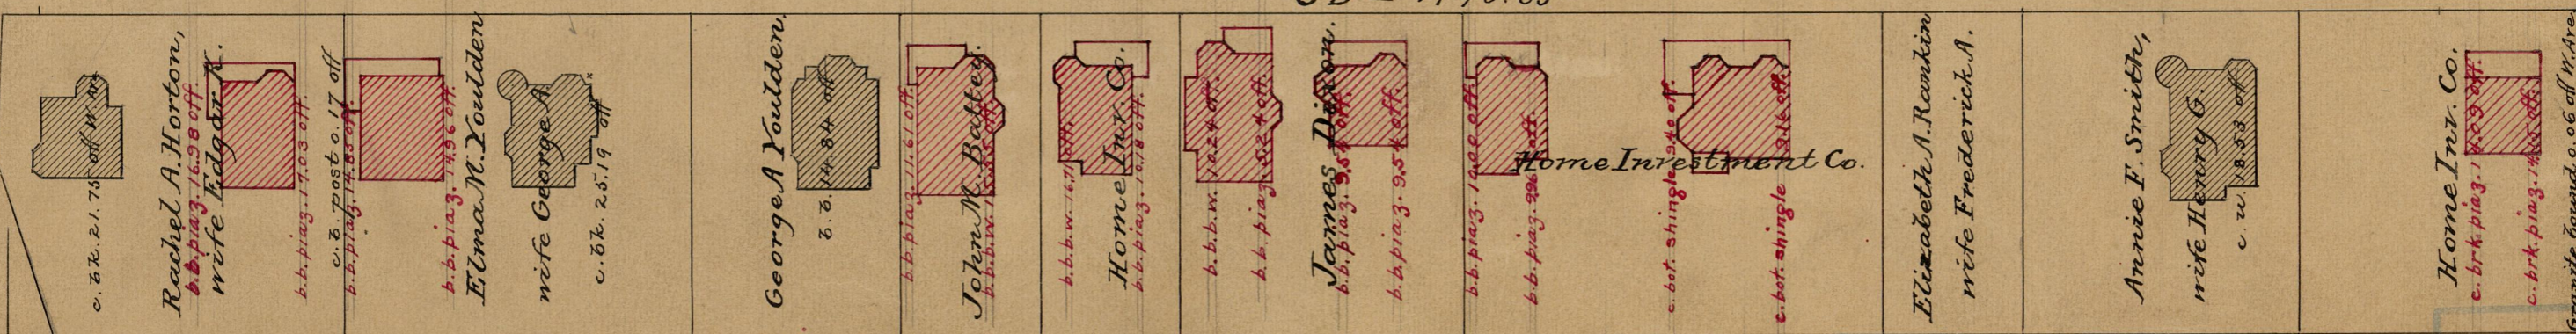 c. bk. 21.75 off W. Av.
Rachel A. Horton,
b.b. piaz. 16.98 off.
wife Edgar K.
b.b. piaz. 17.03 off.
c.b. post 0.17 off
b.b. piaz. 14.83 off.
b.b. piaz. 14.96 off.
Elma M. Youlden
wife George A.
c. bk. 25.19 off
George A Youlden.
b.b. 14.84 off
b.b. piaz. 11.61 off.
John M. Battey.
b.b.b.w.
b.b.b.w.
Home Inv. Co.
b.b. piaz. 10.18 off.
b.b.b.w. 10.24 off.
b.b. piaz. off.
James Dixon.
b.b. piaz.
b.b. piaz. 9.54 off.
b.b. piaz. 10.00 off.
b.b. piaz. 9.96 off.
Home Investment Co.
c. bot. shingle 9.40 off.
c. bot. shingle 9.16 off.
Elizabeth A. Rankin
wife Frederick A.
Annie F. Smith,
wife Henry G.
c. w. 18.53 off
Home Inv. Co.
c. brk. piaz. off.
c. brk. piaz. off.
0.06 off W. Ave